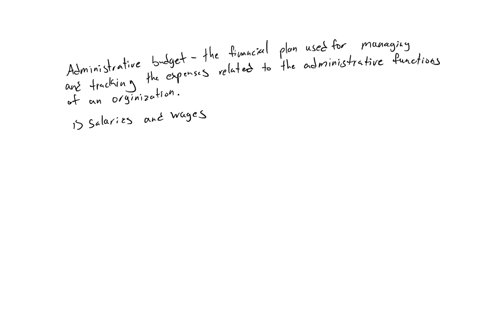 Administrative budget - the financial plan used for managing
and tracking the expenses related to the administrative functions
of an orginization.
1) Salaries and wages